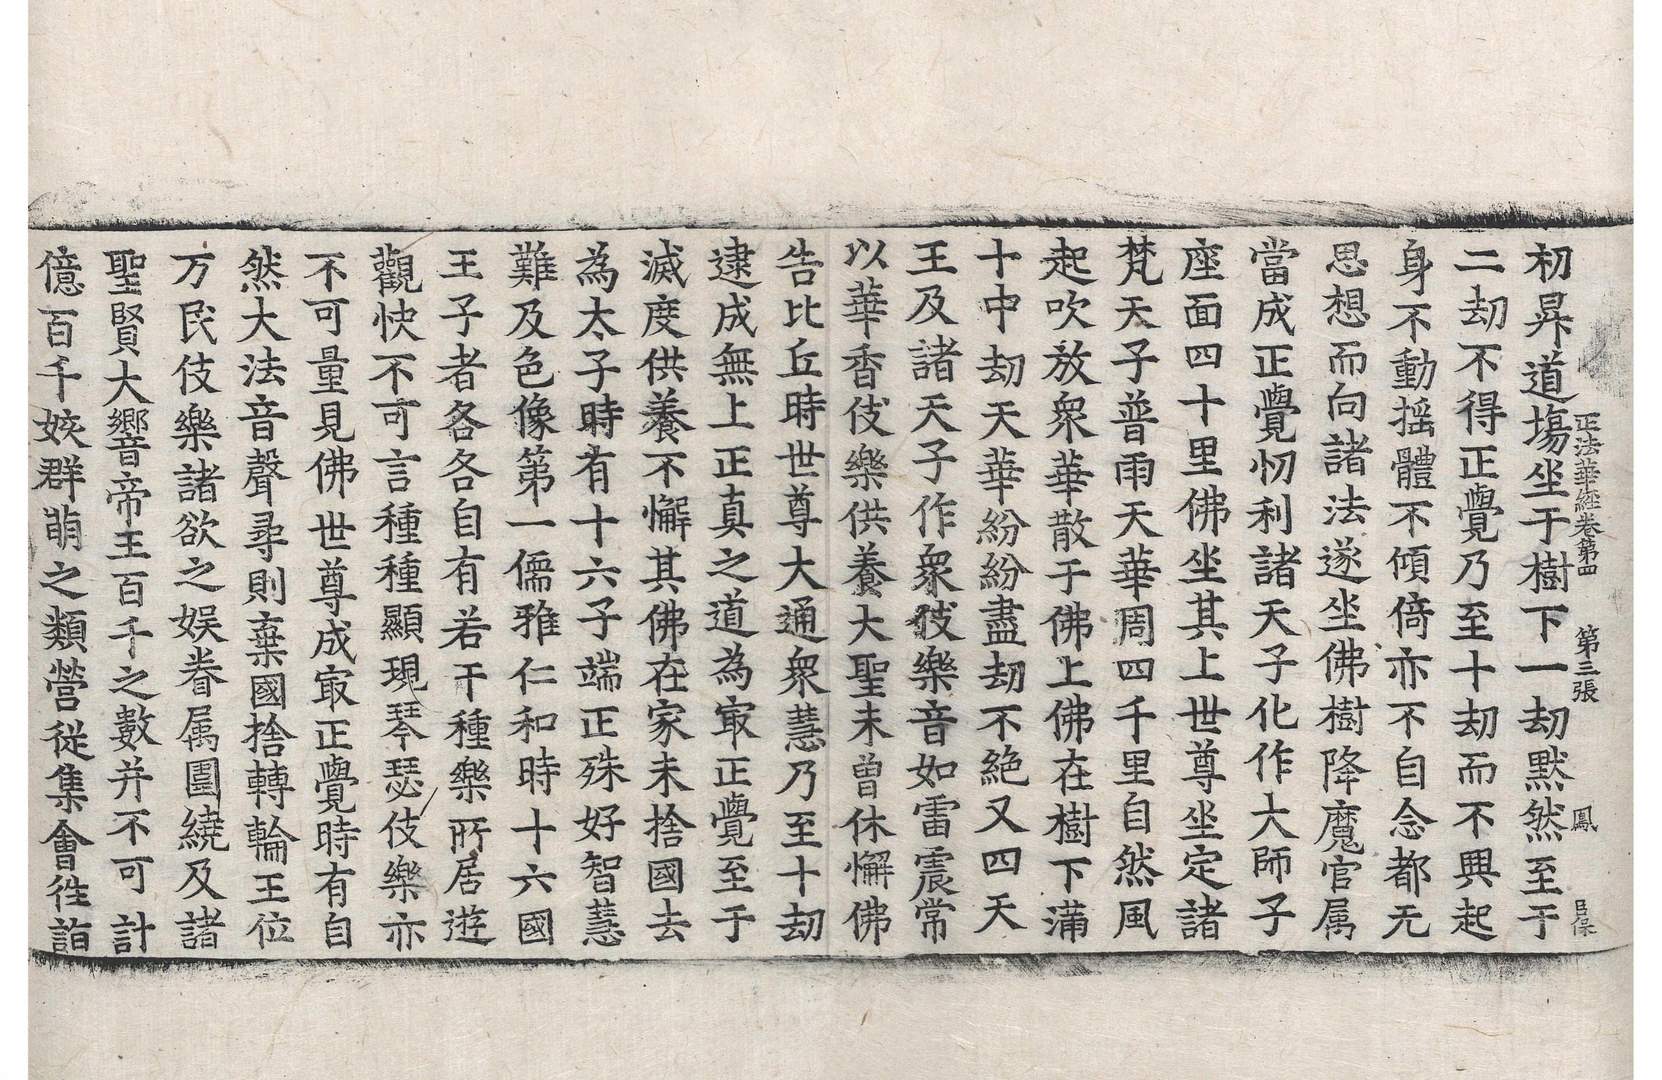 正法華經卷第四 第三張 鳳
初昇道場坐于樹下一劫默然至于
二劫不得正覺乃至十劫而不興起
身不動揺體不傾倚亦不自念都无
思想而向諸法遂坐佛樹降魔官属
當成正覺忉利諸天子化作大師子
座面四十里佛坐其上世尊坐定諸
梵天子普雨天華周四千里自然風
起吹放衆華散于佛上佛在樹下滿
十中劫天華紛紛盡劫不絶又四天
王及諸天子作衆伎樂音如雷震常
以華香伎樂供養大聖未曾休懈佛
告比丘時世尊大通衆慧乃至十劫
逮成無上正真之道為㝡正覺至于
滅度供養不懈其佛在家未捨國去
為太子時有十六子端正殊好智慧
難及色像第一儒雅仁和時十六國
王子者各各自有若干種樂所居遊
觀快不可言種種顯現琴瑟伎樂亦
不可量見佛世尊成㝡正覺時有自
然大法音聲尋則棄國捨轉輪王位
万民伎樂諸欲之娱眷属圍繞及諸
聖賢大響帝王百千之數并不可計
億百千姟群萌之類營從集會徃詣